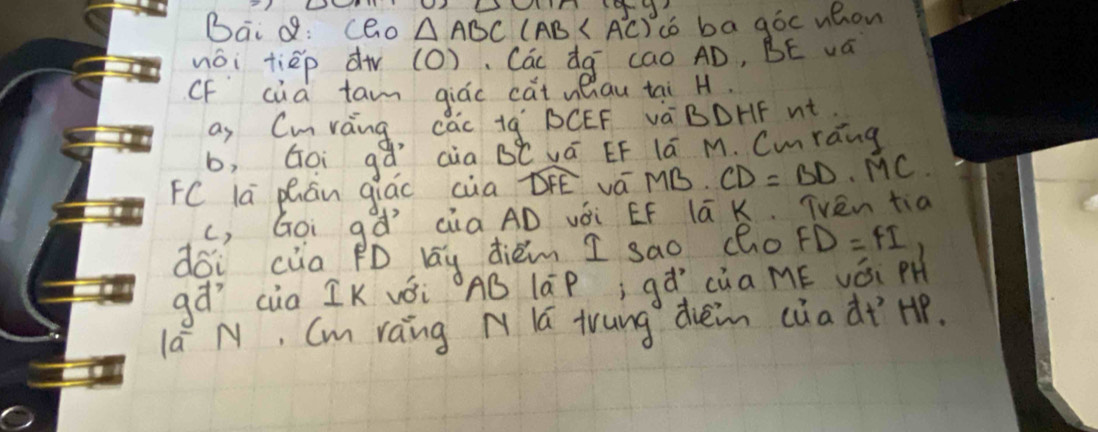 Bài 8: Cho △ ABC (AB < AC) có ba góc nhọn
nội tiếp đtr (O). Các đg cao AD, BE và
CF của tam giác cắt nhau tại H.
a, Cm rằng các tg BCEF và BDHF nt.
b, Gọi gđ' của BC và EF là M. Cm rằng
FC là phân giác của DFE và MB.CD = BD.MC.
c, Gọi gđ' của AD với EF là K. Trên tia
đối của FD lấy điểm I sao cho FD = FI,
gđ' của IK với AB là P ; gđ' của ME với PH
là N. Cm rằng N là trung điểm của đt' HP.